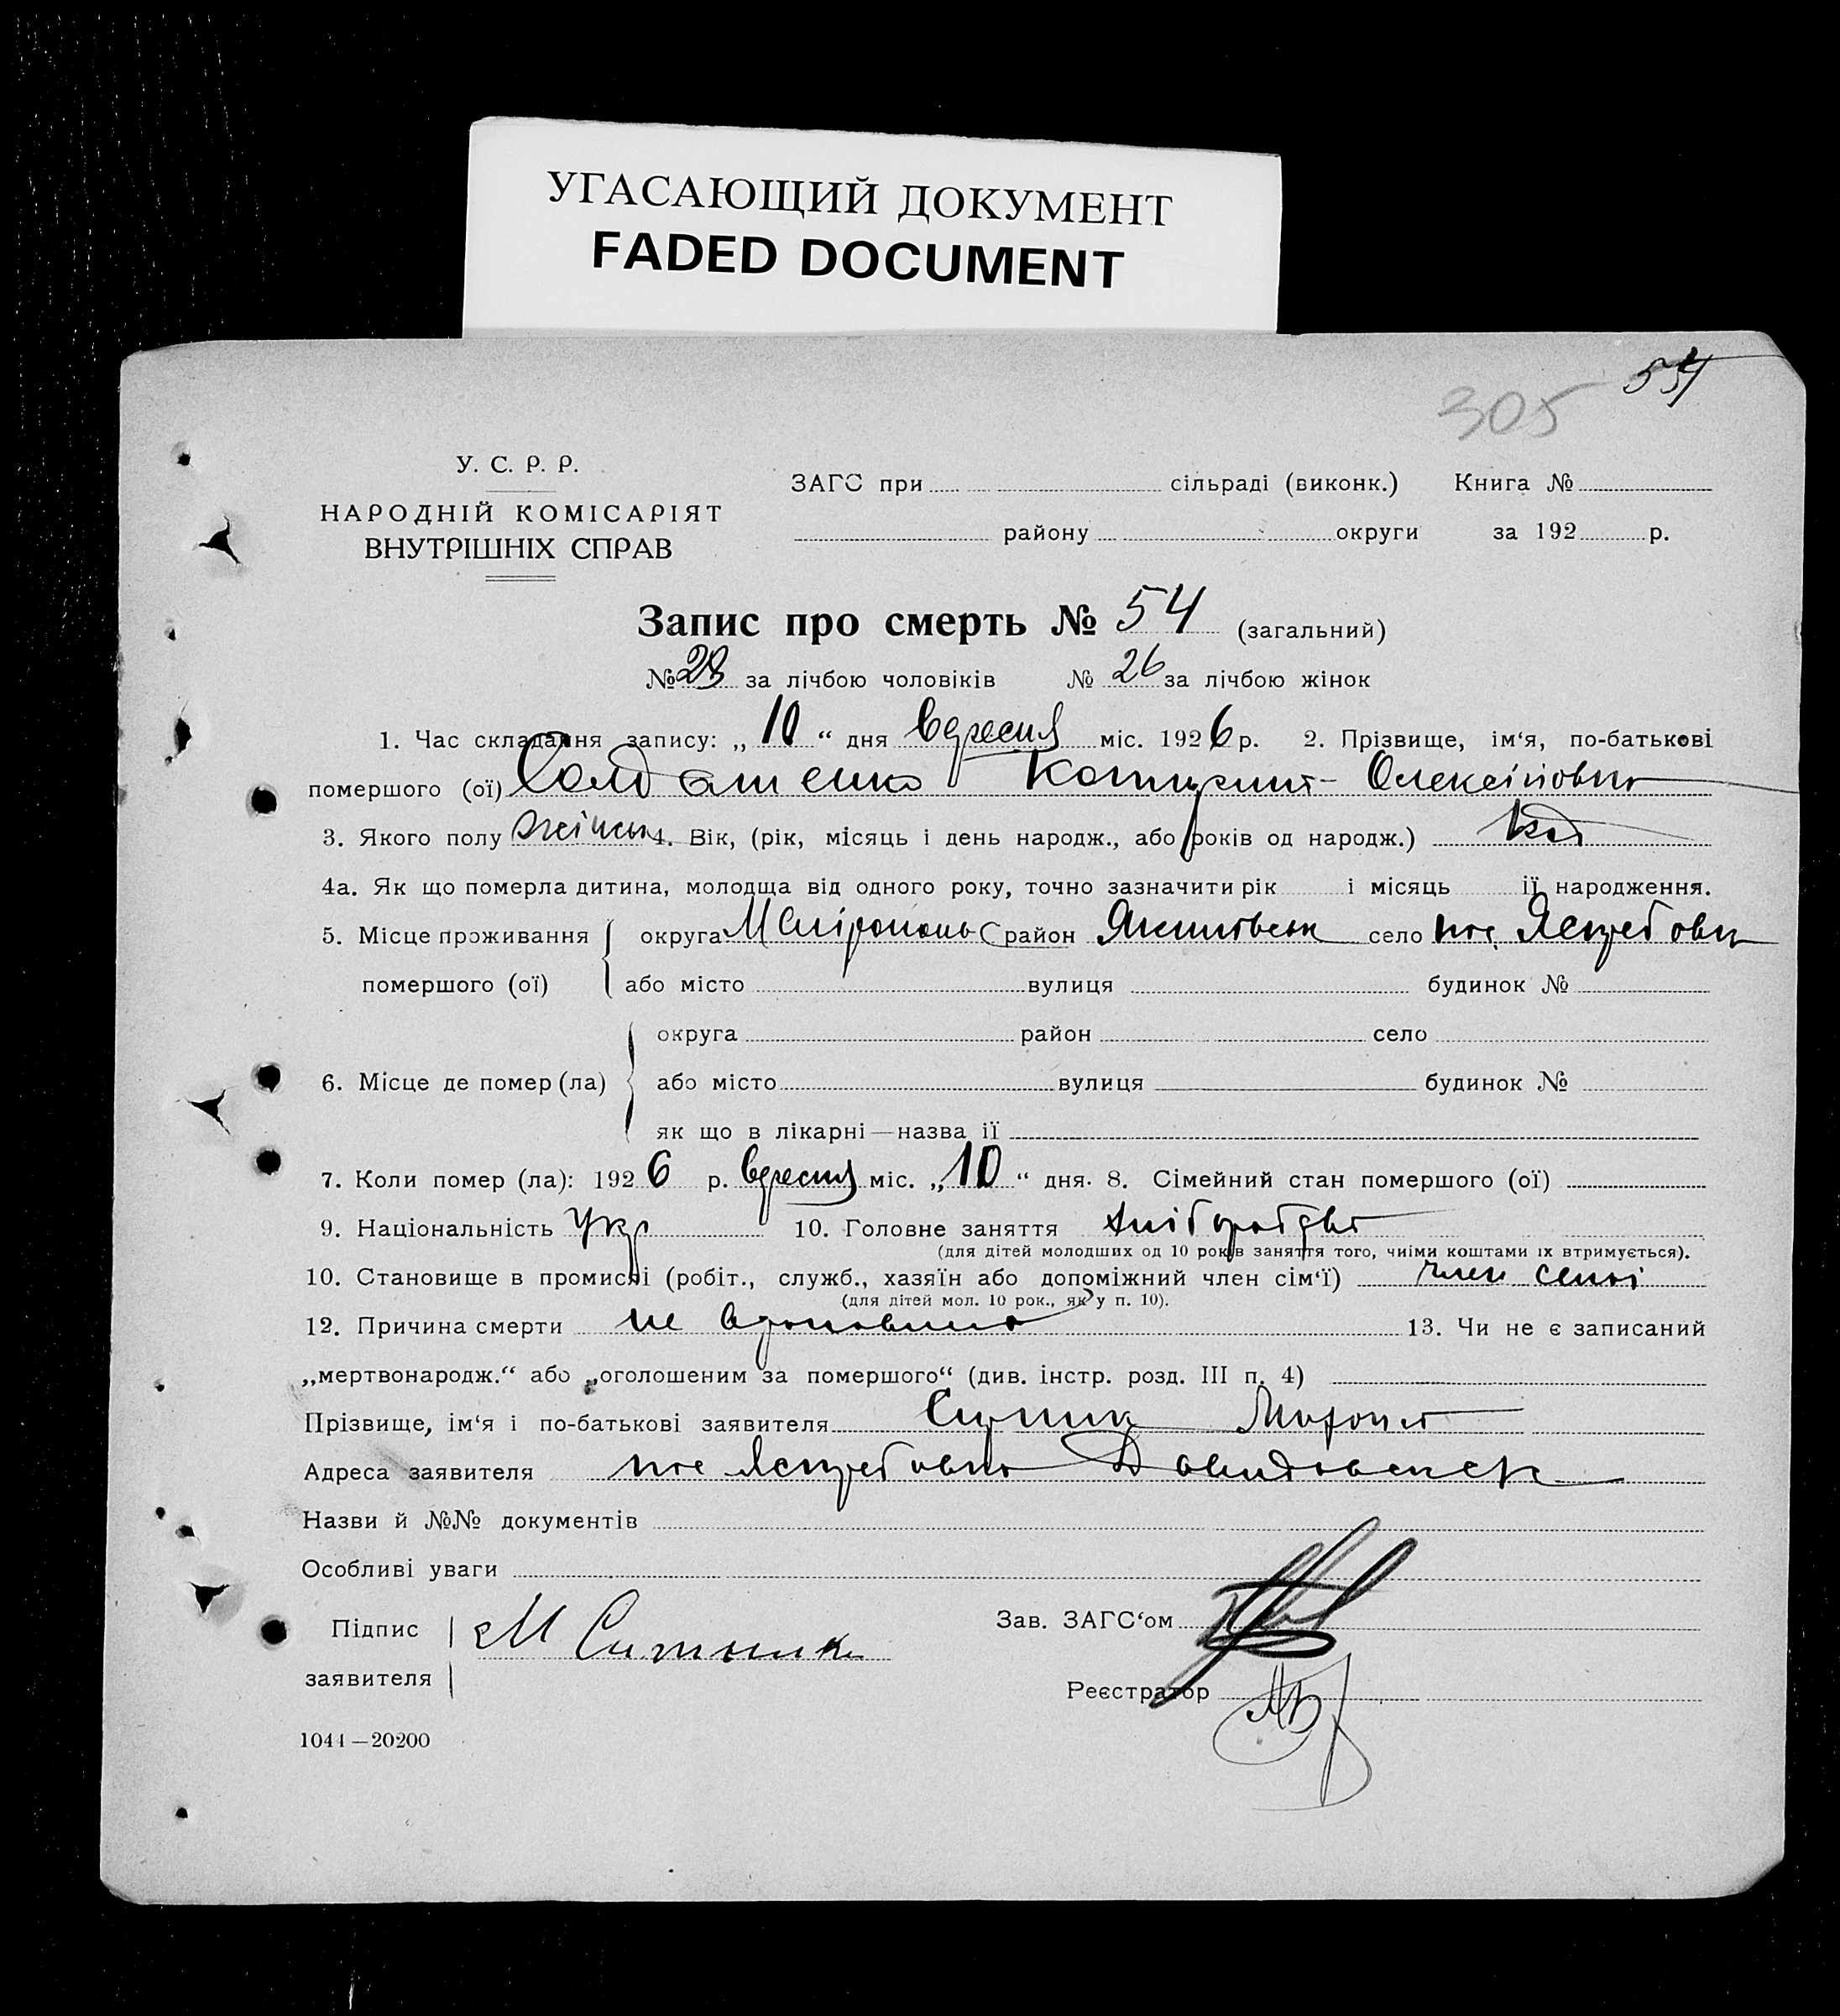 УГАСАЮЩИЙ ДОКУМЕНТ
FADED DOCUMENT
54
305
У. С. Р. Р.
НАРОДНІЙ КОМІСАРІЯТ
ВНУТРІШНІХ СПРАВ
ЗАГС при сільраді (виконк.) Книга №
району округи за 192 р.
Запис про смерть № 54 (загальний)
№ 28 за лічбою чоловіків № 26 за лічбою жінок
1. Час складання запису: „ 10 “ дня вересня міс. 1926 р. 2. Прізвище, ім‘я, по-батькові
помершого (ої) Солдатенко Катерина Олексіївна
3. Якого полу жіноч 4. Вік, (рік, місяць і день народж., або років од народж.)
4а. Як що померла дитина, молодша від одного року, точно зазначити рік і місяць ії народження.
5. Місце проживання округа Меліропонь район Якимівськ село пос.
помершого (ої) або місто вулиця будинок №
округа район село
6. Місце де помер (ла) або місто вулиця будинок №
як що в лікарні—назва ії
7. Коли помер (ла): 1926 р. вересня міс. „10“ дня. 8. Сімейний стан помершого (ої)
9. Національність Укр 10. Головне заняття хліборобство
(для дітей молодших од 10 років заняття того, чиїми коштами їх втримується).
10. Становище в промислі (робіт., служб., хазяїн або допоміжний член сім‘ї) член семьі
(для дітей мол. 10 рок., як у п. 10).
12. Причина смерти не 13. Чи не є записаний
„мертвонародж.“ або „оголошеним за помершого“ (див. інстр. розд. III п. 4)
Прізвище, ім‘я і по-батькові заявителя
Адреса заявителя пос
Назви й №№ документів
Особливі уваги
Підпис М Ситник Зав. ЗАГС‘ом
заявителя
Реєстратор
1044—20200